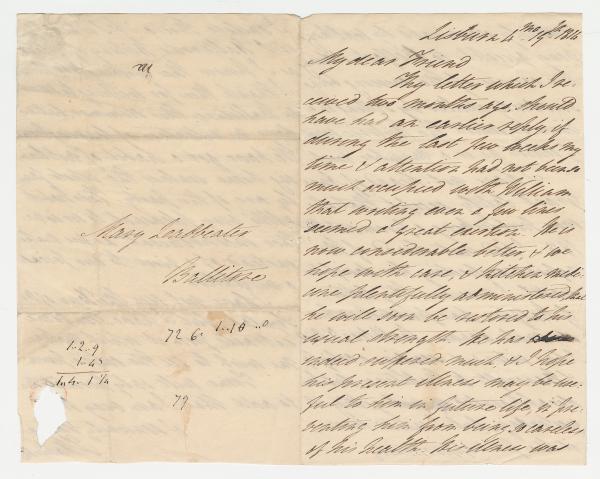 Mary Leadbeater
Ballitore
72 6
1..10..0
1-2-9
79
Lisburn 4th mo 19th 1816
My dear Friend
Thy letter which I re-
ceived two months ago, should
have had an earlier reply, if
during the last few weeks my
time & attention had not been so
much occupied with William
that writing even a few lines
seemed a great exertion. He is
now considerable better, & we
hope with care, & kitchen medi-
cine plentifully administered, that
he will soon be restored to his
usual strength. He has
indeed suffered much, & I hope
his present illness may be use-
ful to him in future life, in pre-
venting him from being so careless
of his health. His illness was